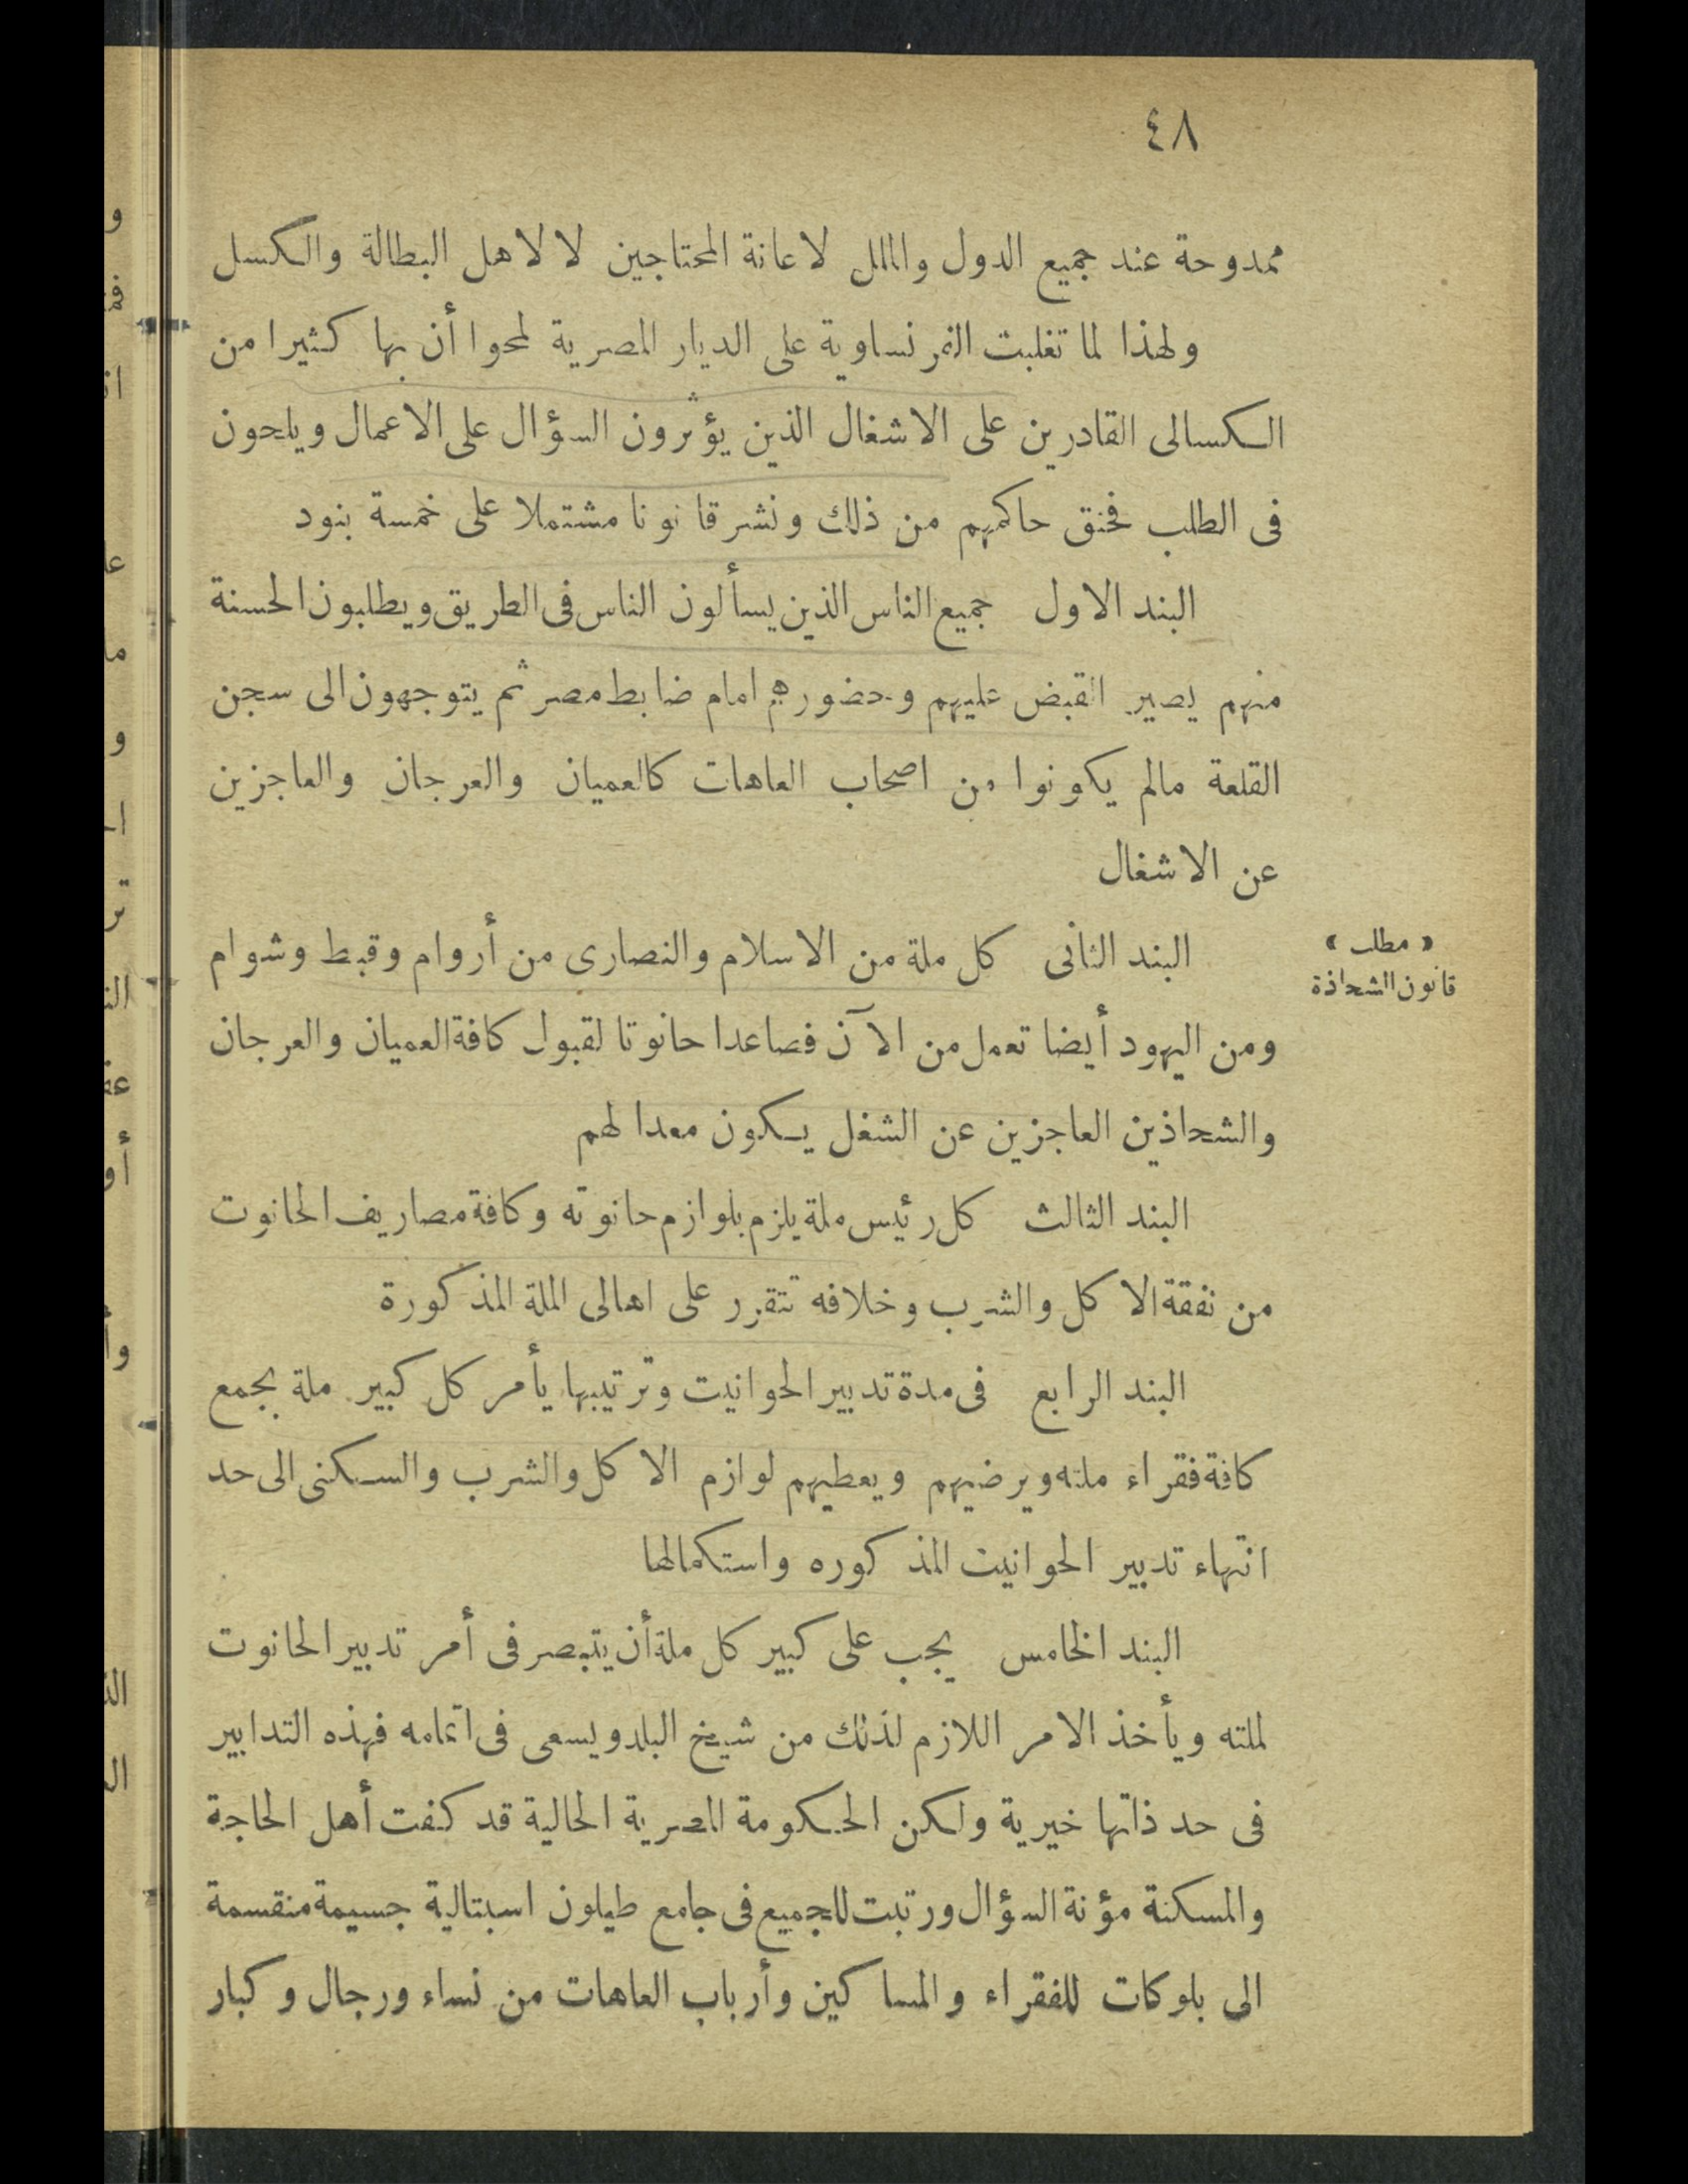 ٤٨
ممدوحة عند جميع الدول والملل لاعانة المحتاجين لا لاهل البطالة والكسل
ولهذا لما تغلبت الفرنساوية على الديار المصرية لمحوا أن بها كثيرا من
الكسالى القادرين على الاشغال الذين يؤثرون السؤال على الاعمال ويلحون
فى الطلب فحنق حاكمهم من ذلك ونشر قانونا مشتملا على خمسة بنود
البند الاول جميع الناس الذين يسألون الناس فى الطريق ويطلبون الحسنة
منهم يصير القبض عليهم وحضورهم امام ضابط مصر ثم يتوجهون الى سجن
القلعة مالم يكونوا من اصحاب العاهات كالعميان والعرجان والعاجزين
عن الاشغال
« مطلب »
قانون الشحاذة
البند الثانى كل ملة من الاسلام والنصارى من أروام وقبط وشوام
ومن اليهود أيضا تعمل من الآن فصاعدا حانوتا لقبول كافة العميان والعرجان
والشحاذين العاجزين عن الشغل يكون معدا لهم
البند الثالث كل رئيس ملة يلزم بلوازم حانوته وكافة مصاريف الحانوت
من نفقة الاكل والشرب وخلافه تتقرر على اهالى الملة المذكورة
البند الرابع فى مدة تدبير الحوانيت وترتيبها يأمر كل كبير ملة بجمع
كافة فقراء ملته ويرضيهم ويعطيهم لوازم الاكل والشرب والسكنى الى حد
انتهاء تدبير الحوانيت المذكوره واستكمالها
البند الخامس يجب على كبير كل ملة أن يتبصر فى أمر تدبير الحانوت
لملته ويأخذ الامر اللازم لذلك من شيخ البلد ويسعى فى اتمامه فهذه التدابير
فى حد ذاتها خيرية ولكن الحكومة المصرية الحالية قد كفت أهل الحاجة
والمسكنة مؤنة السؤال ورتبت للجميع فى جامع طيلون اسبتالية جسيمة منقسمة
الى بلوكات للفقراء والمساكين وأرباب العاهات من نساء ورجال وكبار